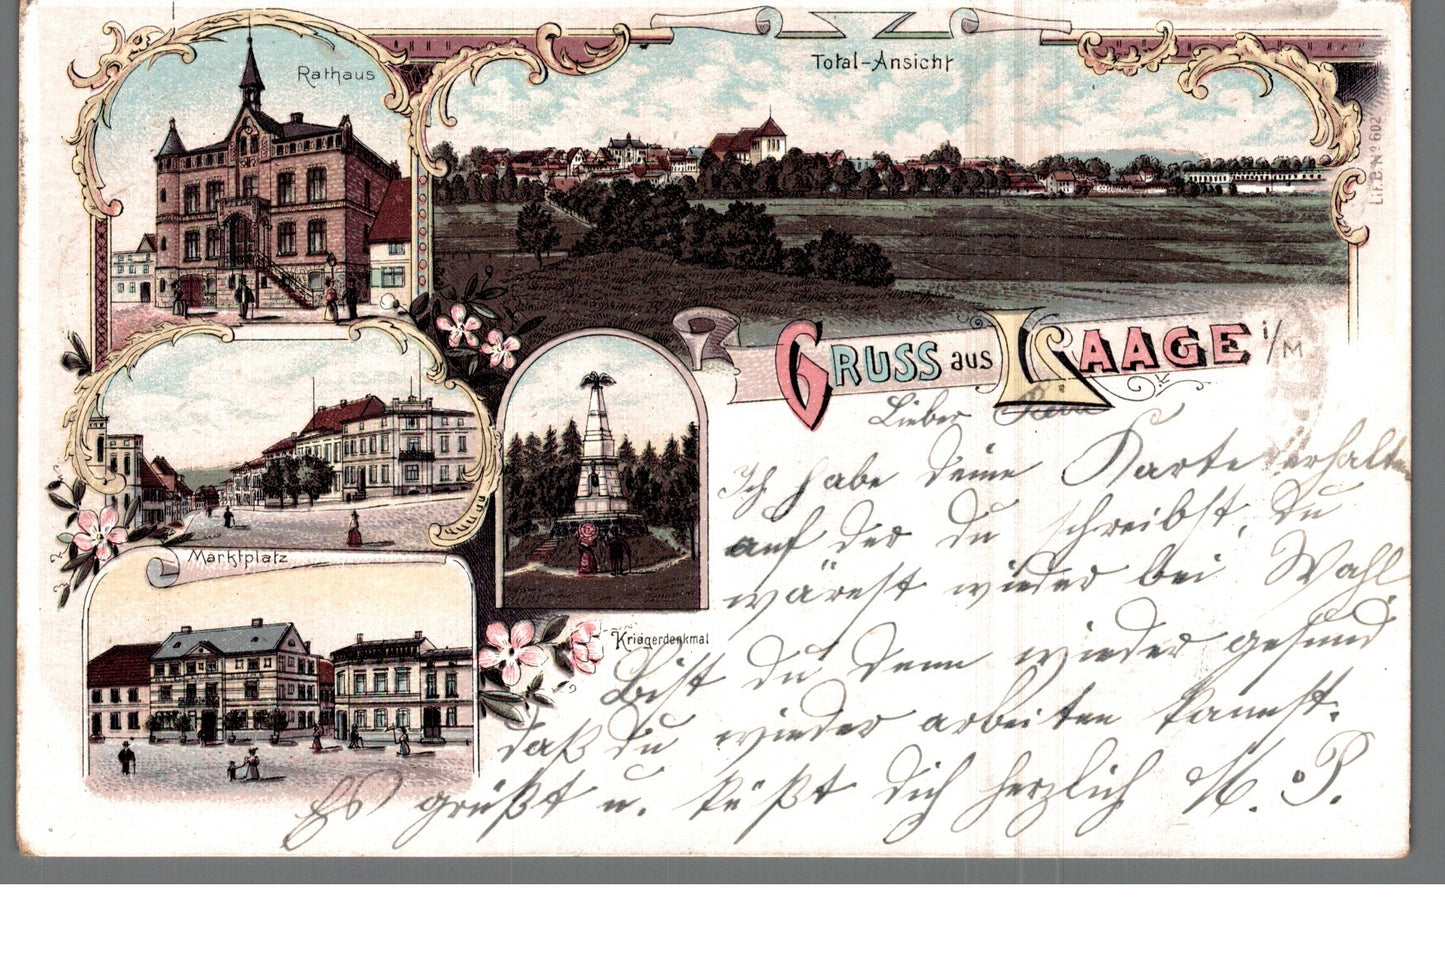 Rathaus
Total-Ansicht
Lit.B.Nº 602
Gruss aus Laage i/M
Marktplatz
Kriegerdenkmal
Lieber
Ich habe deine Karte erhalten
auf der du schreibst, du
wärest wieder bei Wahl
Bist du denn wieder gesund
daß du wieder arbeiten kannst.
Es grüßt u. küßt dich herzlich M. P.